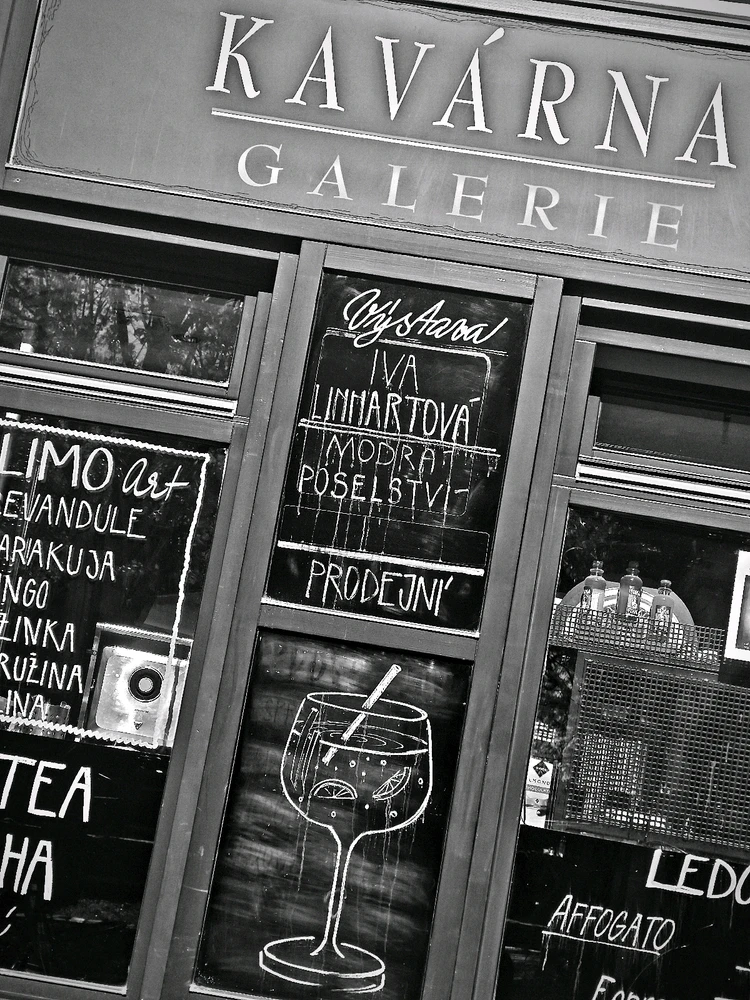 KAVÁRNA
GALERIE
Výstava
IVA
LINHARTOVÁ
MODRÁ
POSELSTVÍ
PRODEJNÍ
LIMO art
LEVANDULE
ARAKUJA
NGO
ŽINKA
RUŽINA
LINA
TEA
HA
LEDO
AFFOGATO